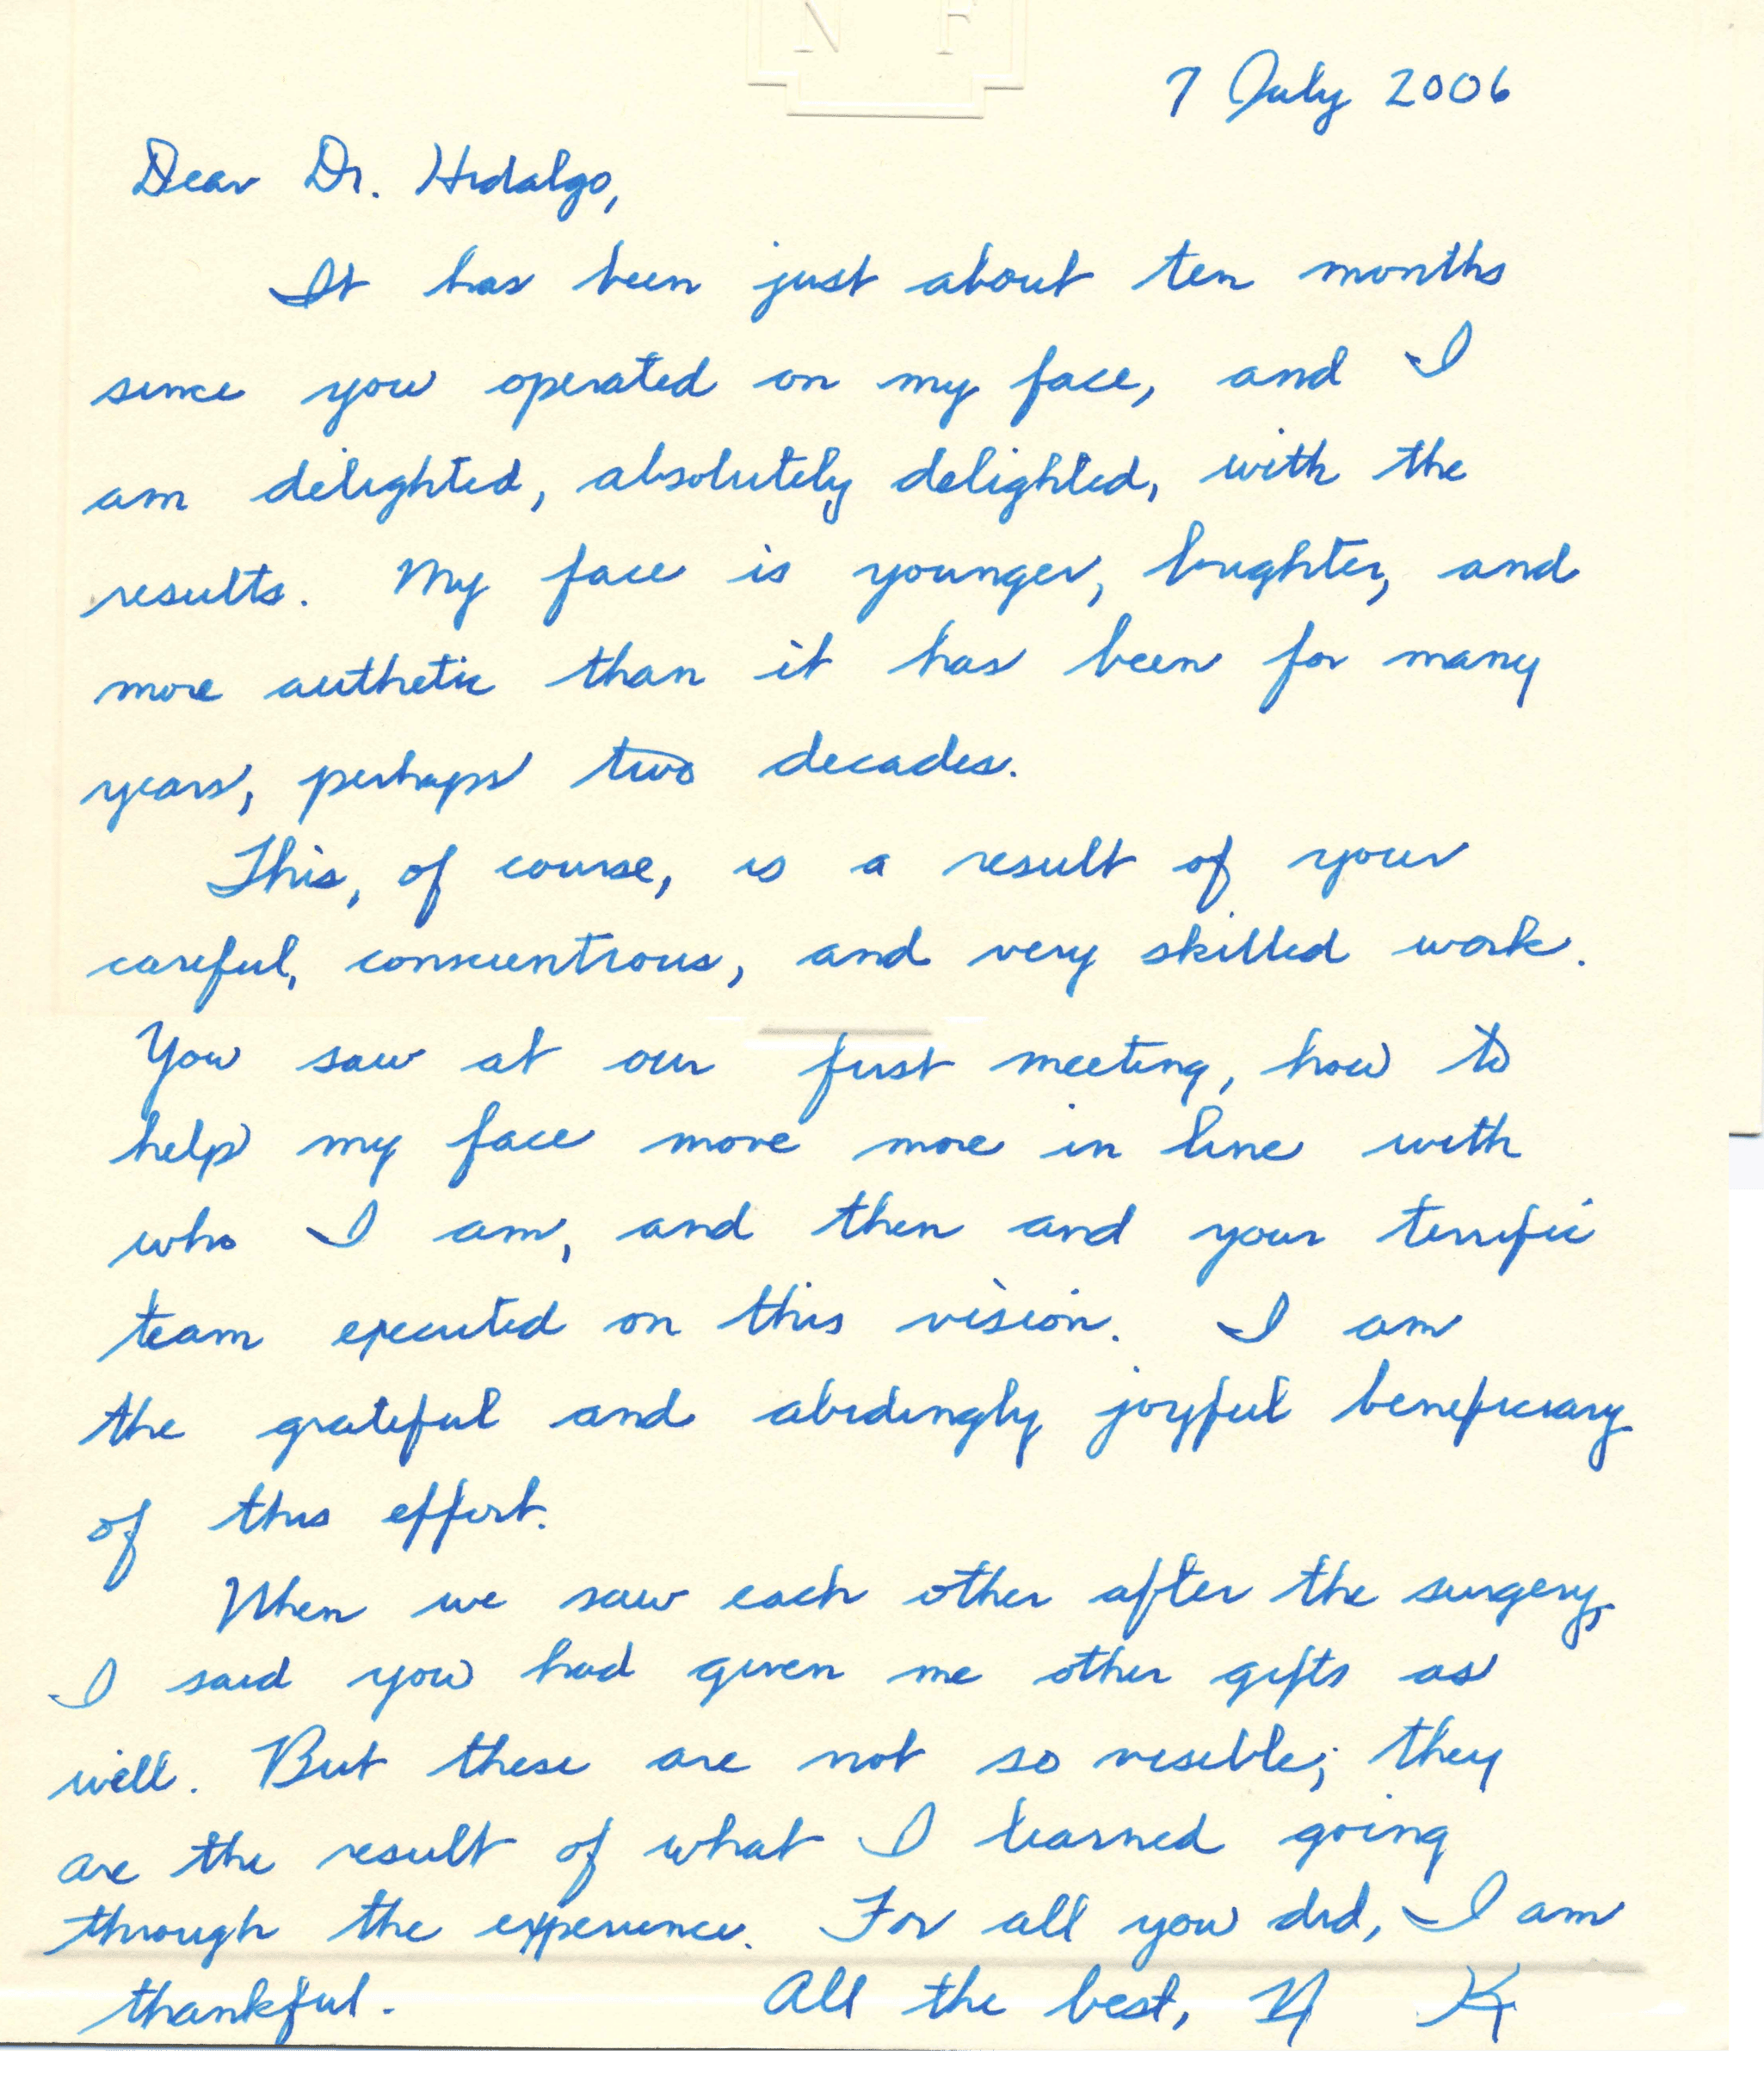 N F
7 July 2006
Dear Dr. Hidalgo,
It has been just about ten months
since you operated on my face, and I
am delighted, absolutely delighted, with the
results. My face is younger, brighter, and
more authetic than it has been for many
years, perhaps two decades.
This, of course, is a result of your
careful, conscientious, and very skilled work.
You saw at our first meeting, how to
help my face move more in line with
who I am, and then and your terrific
team executed on this vision. I am
the grateful and abidingly joyful beneficiary
of this effort.
When we saw each other after the surgery,
I said you had given me other gifts as
well. But these are not so visible; they
are the result of what I learned going
through the experience. For all you did, I am
thankful. All the best, N K